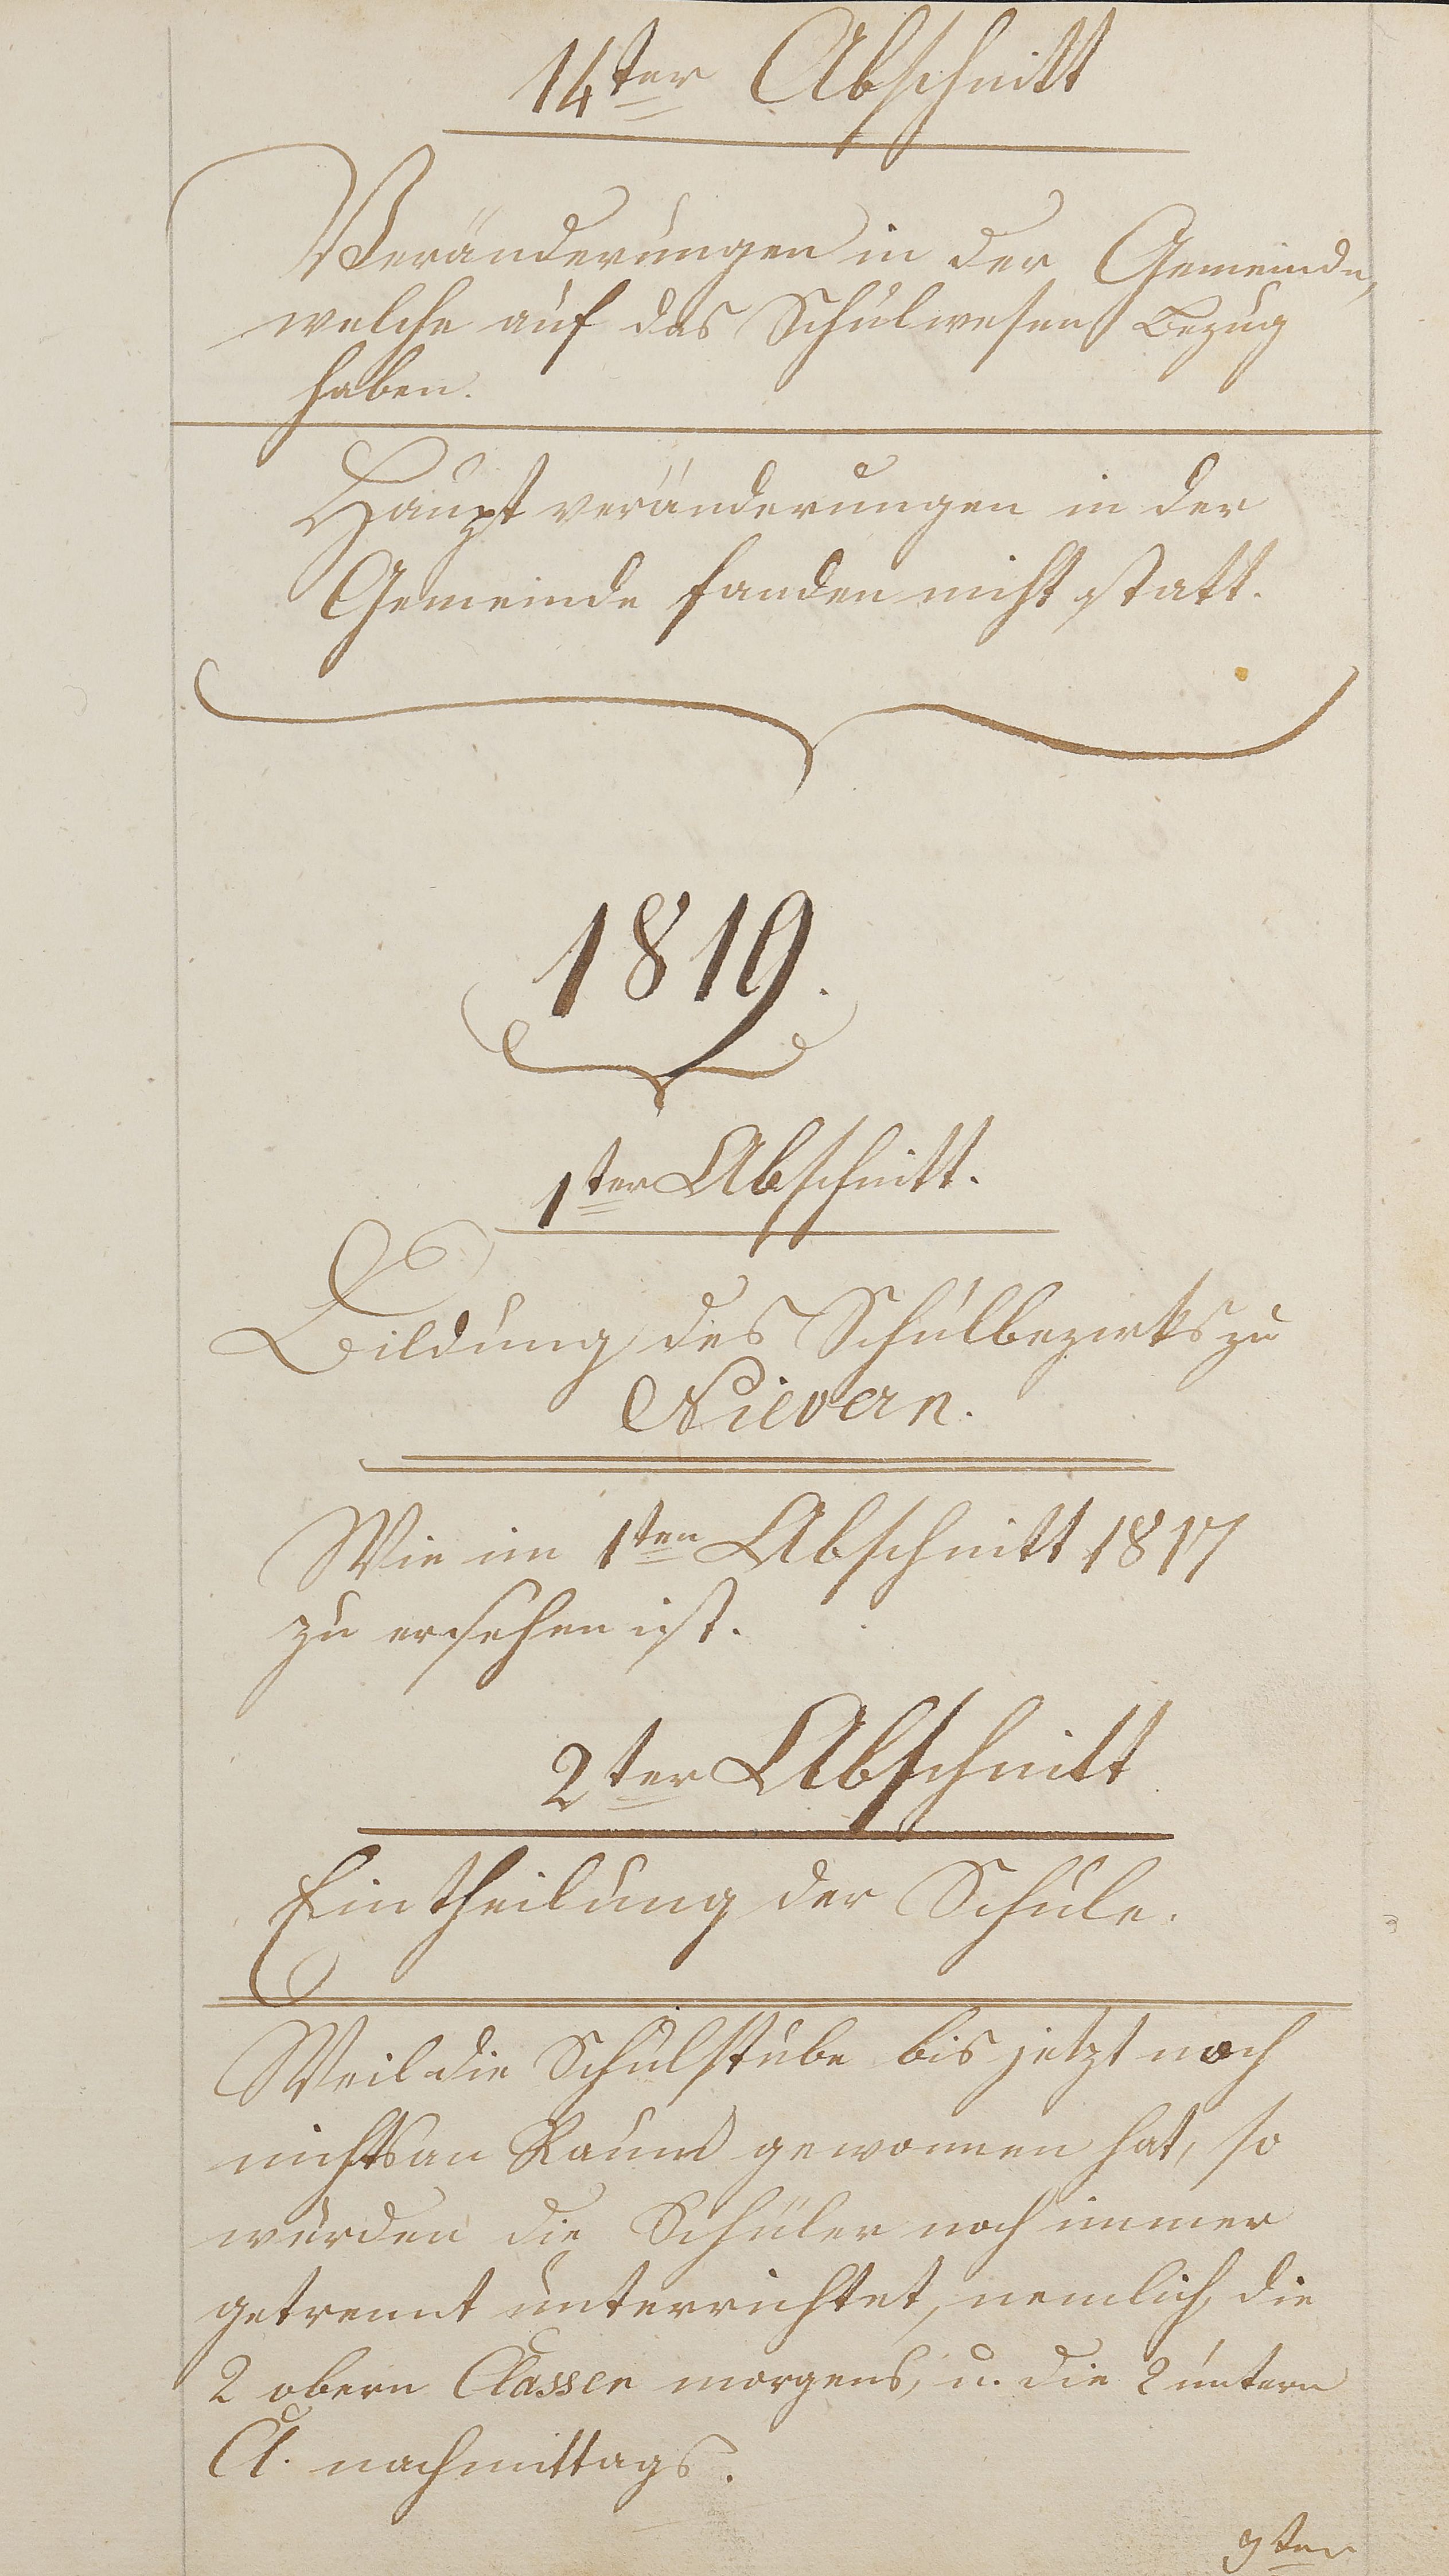 14ter Abschnitt
Veränderungen in der Gemeinde,
welche auf das Schulwesen Bezug
haben.
Hauptveränderungen in der
Gemeinde fanden nicht statt.
1819.
1ter Abschnitt.
Bildung des Schulbezirks zu
Nievern.
Wie im 1ten Abschnitt 1817
zu ersehen ist.
2ter Abschnitt
Eintheilung der Schule.
Weil die Schulstube bis jetzt noch
nichts an Raum gewonnen hat, so
wurden die Schüler noch immer
getrennt unterrichtet, nemlich, die
2 obern Classen morgens, u. die 2 untern
Cl. nachmittags.